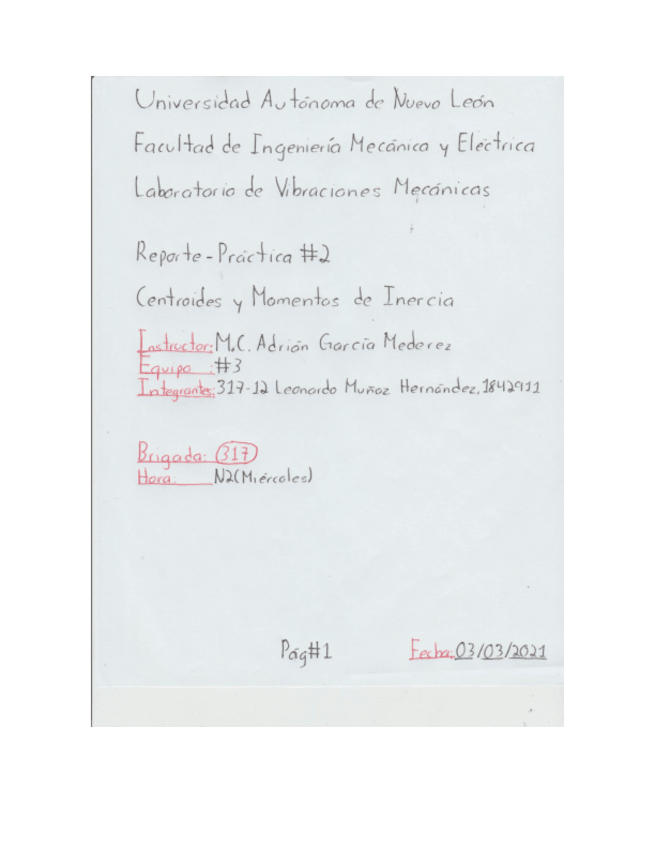 Universidad Autónoma de Nuevo León
Facultad de Ingeniería Mecánica y Eléctrica
Laboratorio de Vibraciones Mecánicas
Reporte-Práctica #2
Centroides y Momentos de Inercia
Instructor: M.C. Adrián García Mederez
Equipo : #3
Integrantes: 317-12 Leonardo Muñoz Hernández, 1842911
Brigada: 317
Hora: N2(Miércoles)
Pág#1 Fecha: 03/03/2021